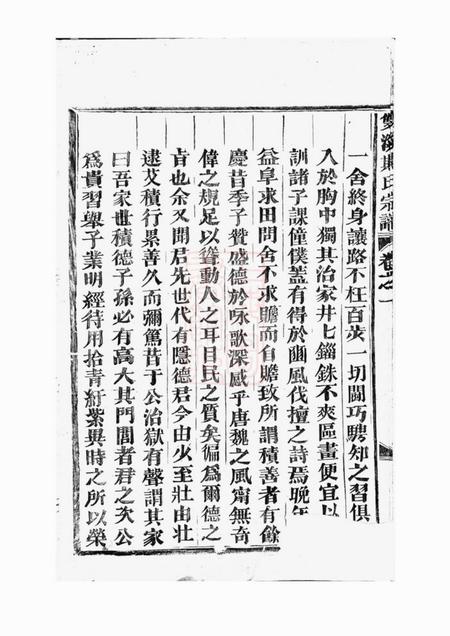 一舍終身讓路不枉百步一切鬬巧騁知之習俱
入於胸中獨其治家井匕錙銖不爽區畫便宜以
訓諸子課僮僕蓋有得於豳風伐檀之詩焉晚年
益阜求田問舍不求贍而自贍致所謂積善者有餘
慶昔季子贊盛德於咏歌深感乎唐魏之風甯無奇
偉之規足以聳動人之耳目民之質矣徧為爾德之
㫖也余又聞君先世代有隱德君今由少至壯由壯
逮艾積行累善久而彌篤昔于公治獄有聲謂其家
曰吾家世積德子孫必有高大其門閭者君之次公
爲貴習舉子業明經待用拾青紆紫異時之所以榮
氏宗譜
卷之一